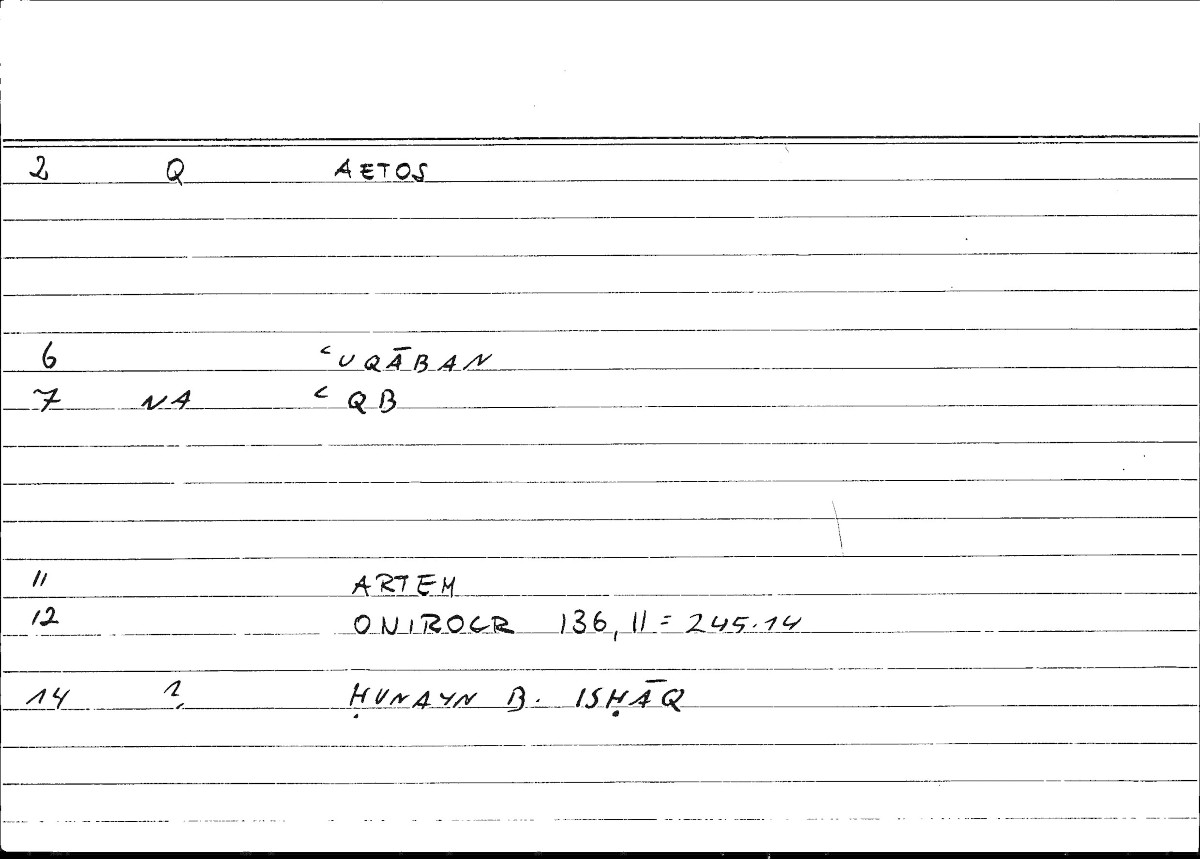 2 Q AETOS
6 ʿUQĀBAN
7 NA ʿQB
11 ARTEM
12 ONIROCR 136, 11 = 245.14
14 ? ḤUNAYN B. ISḤĀQ